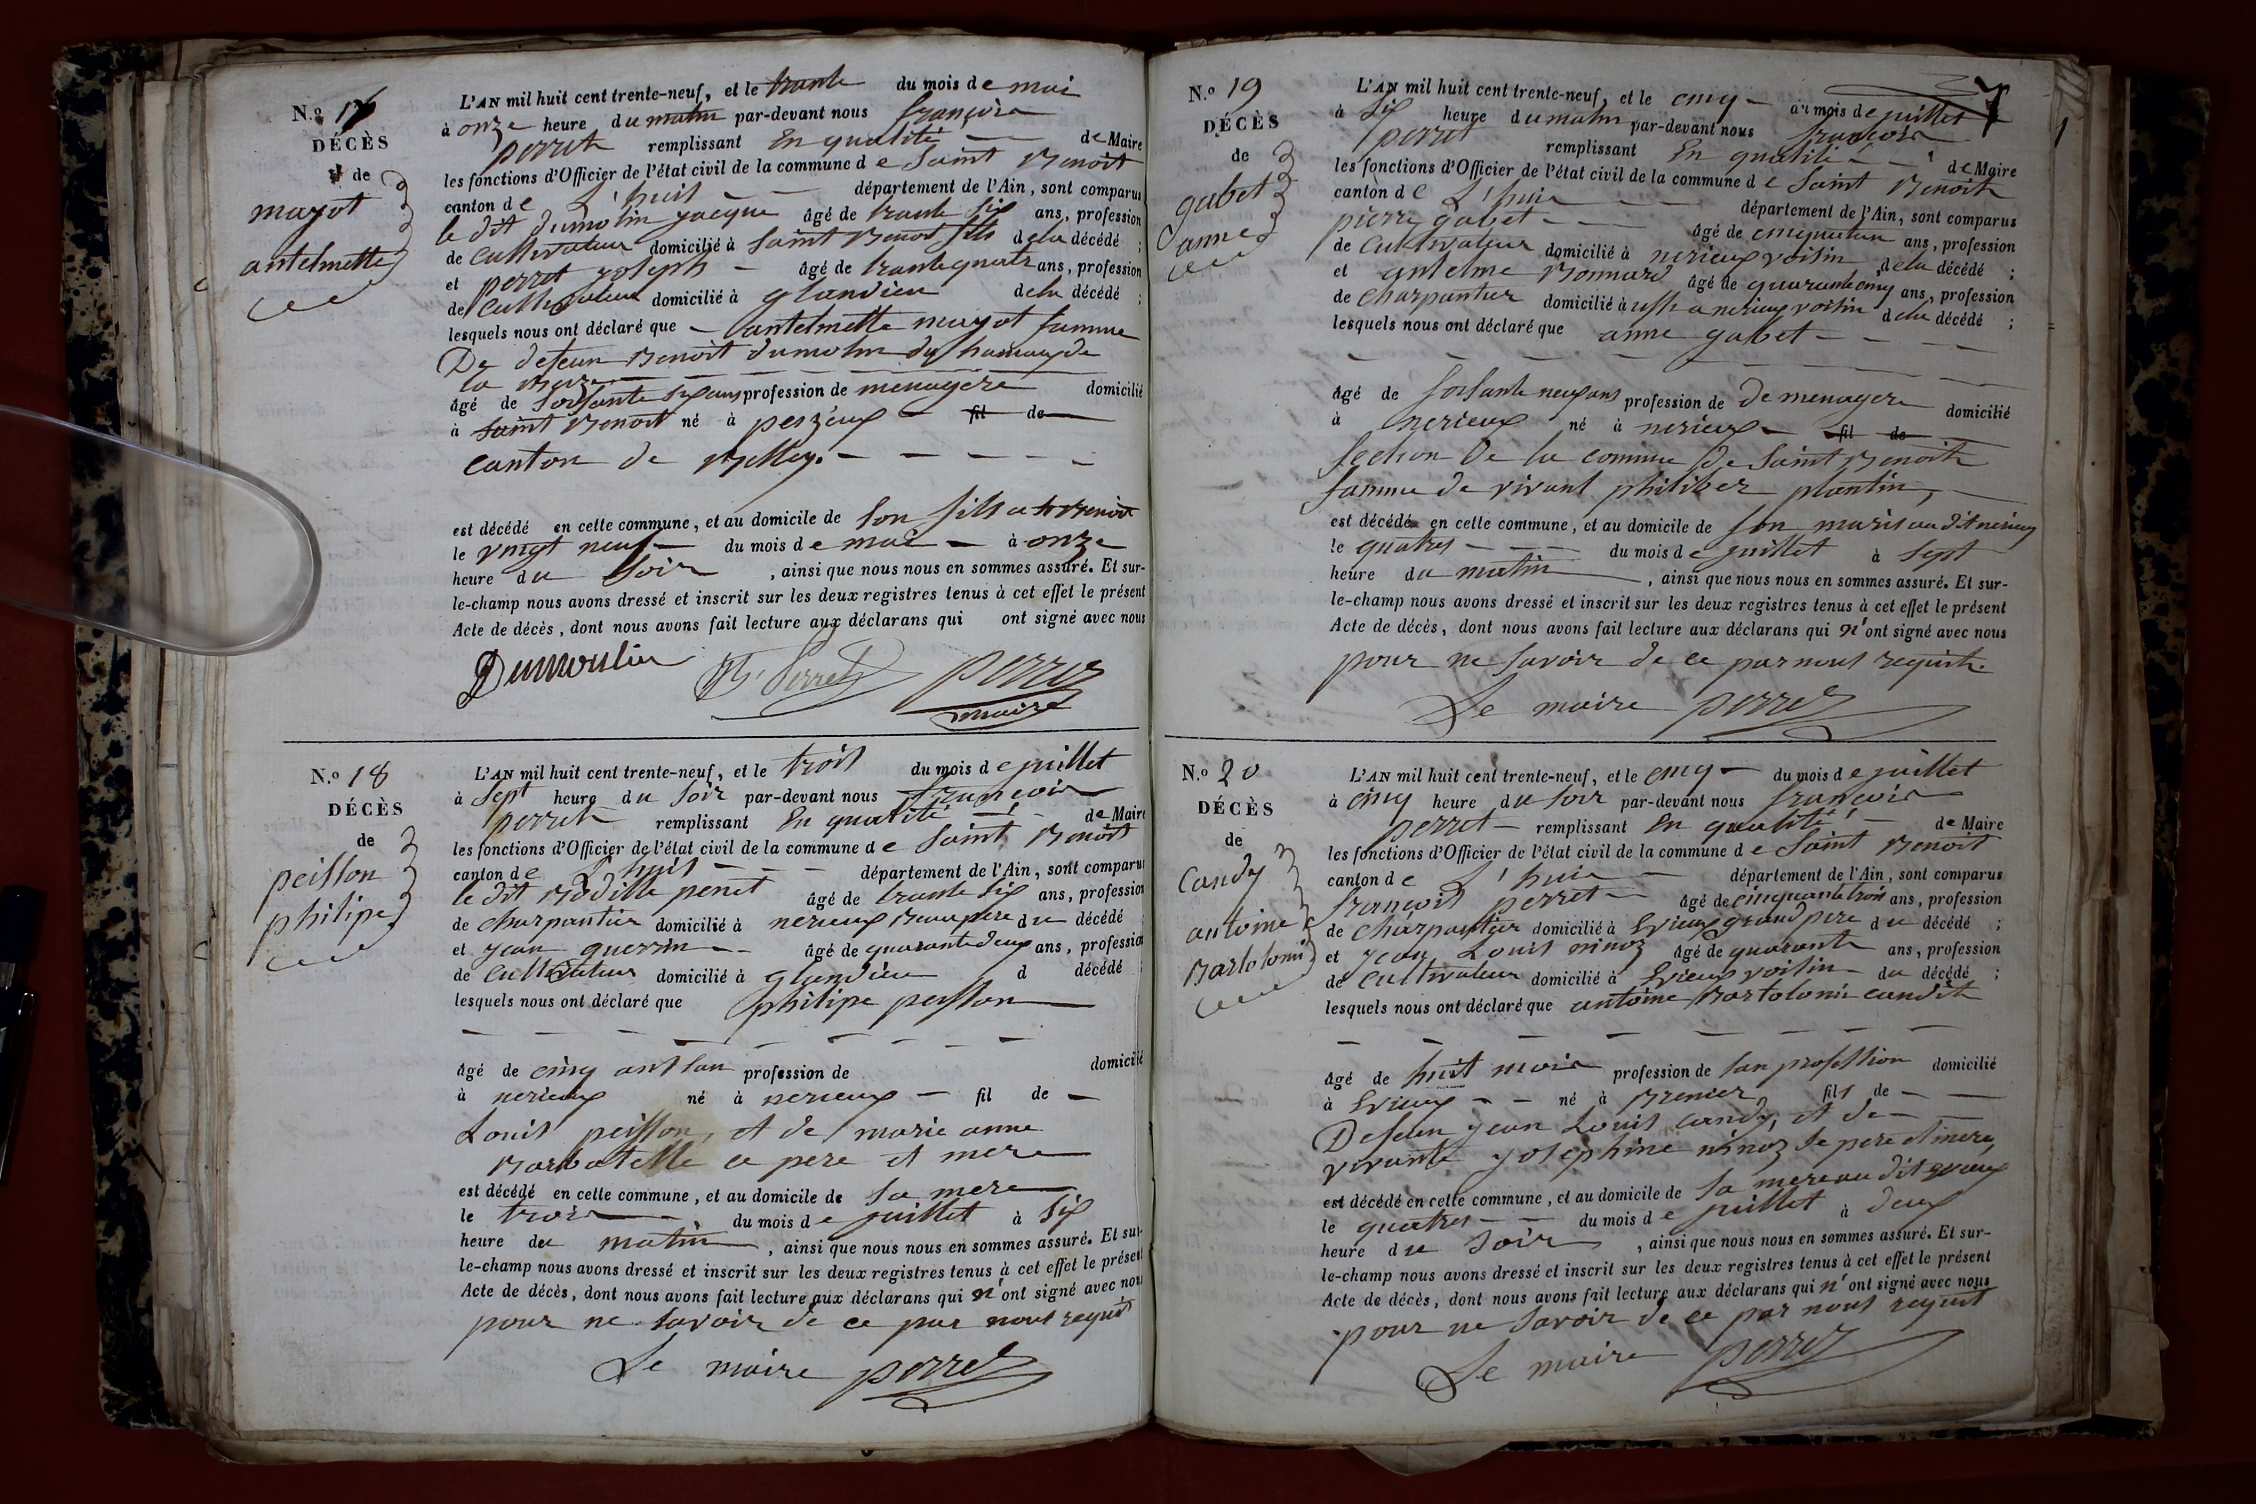 N.º 17
DÉCÈS
de
mayot
antelmette
L'AN mil huit cent trente-neuf, et le trante du mois de mai
à onze heure du matin par-devant nous françois
perret remplissant En qualité de Maire
les fonctions d'Officier de l'état civil de la commune de Saint Benoit
canton de L'huis département de l'Ain, sont comparus
le dit dumolin jacque âgé de trante six ans, profession
de Cultivateur domicilié à Saint Benoit fils de la décédé ;
et perret joseph âgé de trante quatre ans, profession
de Cultivateur domicilié à glandieu de la décédé ;
lesquels nous ont déclaré que antelmette mayot famme
De defeun Benoit dumolin du hamaux de
la
âgé de soisante six ans profession de menagere domicilié
à Saint Benoit né à peyzieux fil de
canton de Belley.
est décédé en cette commune, et au domicile de son fils a st Benoit
le vingt neuf du mois de mai à onze
heure du Soir , ainsi que nous nous en sommes assuré. Et sur-
le-champ nous avons dressé et inscrit sur les deux registres tenus à cet effet le présent
Acte de décès, dont nous avons fait lecture aux déclarans qui ont signé avec nous
Dumoulin Jh. Perret perret
maire
N.º 18
DÉCÈS
de
peisson
philipe
L'AN mil huit cent trente-neuf, et le trois du mois de juillet
à Sept heure du Soir par-devant nous françois
perret remplissant En qualité de Maire
les fonctions d'Officier de l'état civil de la commune de Saint Benoit
canton de L'huis département de l'Ain, sont comparus
le dit penet âgé de trante six ans, profession
de charpantier domicilié à nerieux Beaupere du décédé
et jean guerrin âgé de quarante deux ans, profession
de Cultivateur domicilié à glandieu d décédé ;
lesquels nous ont déclaré que philipe peisson
âgé de cinq ans san profession de domicilié
à nerieux né à nerieux fil de
Louis peisson, et de marie anne
Barbatelle ce pere et mere
est décédé en cette commune, et au domicile de sa mere
le trois du mois de juillet à Six
heure du matin , ainsi que nous nous en sommes assuré. Et sur-
le-champ nous avons dressé et inscrit sur les deux registres tenus à cet effet le présent
Acte de décès, dont nous avons fait lecture aux déclarans qui n'ont signé avec nous
pour ne savoir de ce par nous requis
Le maire perret
7
N.º 19
DÉCÈS
de
gabet
anne
L'AN mil huit cent trente-neuf, et le cinq du mois de juillet
à Six heure du matin par-devant nous francois
perret remplissant En qualité de Maire
les fonctions d'Officier de l'état civil de la commune de Saint Benoit
canton de L'huis département de l'Ain, sont comparus
pierre gabet âgé de cinquatan ans, profession
de Cultivateur domicilié à nerieux voisin de la décédé ;
et antelme Bonnard âgé de quarante cinq ans, profession
de charpantier domicilié à ausit a nerieux voisin de la décédé ;
lesquels nous ont déclaré que anne gabet
âgé de soisante neuf ans profession de De menagere domicilié
à nerieux né à nerieux fil de
section De la commune de Saint Benoit
famme de vivant philiber plantin,
est décédé en cette commune, et au domicile de son maris au dit nerieux
le quatres du mois de juillet à Sept
heure du matin , ainsi que nous nous en sommes assuré. Et sur-
le-champ nous avons dressé et inscrit sur les deux registres tenus à cet effet le présent
Acte de décès, dont nous avons fait lecture aux déclarans qui n'ont signé avec nous
pour ne savoir de ce par nous requis.
Le maire perret
N.º 20
DÉCÈS
de
Candy
antoine
Bartolomi
L'AN mil huit cent trente-neuf, et le cinq du mois de juillet
à cinq heure du Soir par-devant nous françois
perret remplissant En qualité de Maire
les fonctions d'Officier de l'état civil de la commune de Saint Benoit
canton de L'huis département de l'Ain, sont comparus
françois perret âgé de cinquante trois ans, profession
de charpantier domicilié à Evieux grand pere du décédé ;
et jean Louis ninoz âgé de quarante ans, profession
de Cultivateur domicilié à Evieux voisin du décédé ;
lesquels nous ont déclaré que antoine Bartolomi candit
âgé de huit mois profession de san profession domicilié
à Evieux né à Brenier fils de
Defeun jean Louis Candy, et de
vivante josephine ninoz se pere et mere,
est décédé en cette commune, et au domicile de sa mere au dit Evieux
le quatres du mois de juillet à deux
heure du Soir , ainsi que nous nous en sommes assuré. Et sur-
le-champ nous avons dressé et inscrit sur les deux registres tenus à cet effet le présent
Acte de décès, dont nous avons fait lecture aux déclarans qui n'ont signé avec nous
pour ne savoir de ce par nous requit
Le maire perret